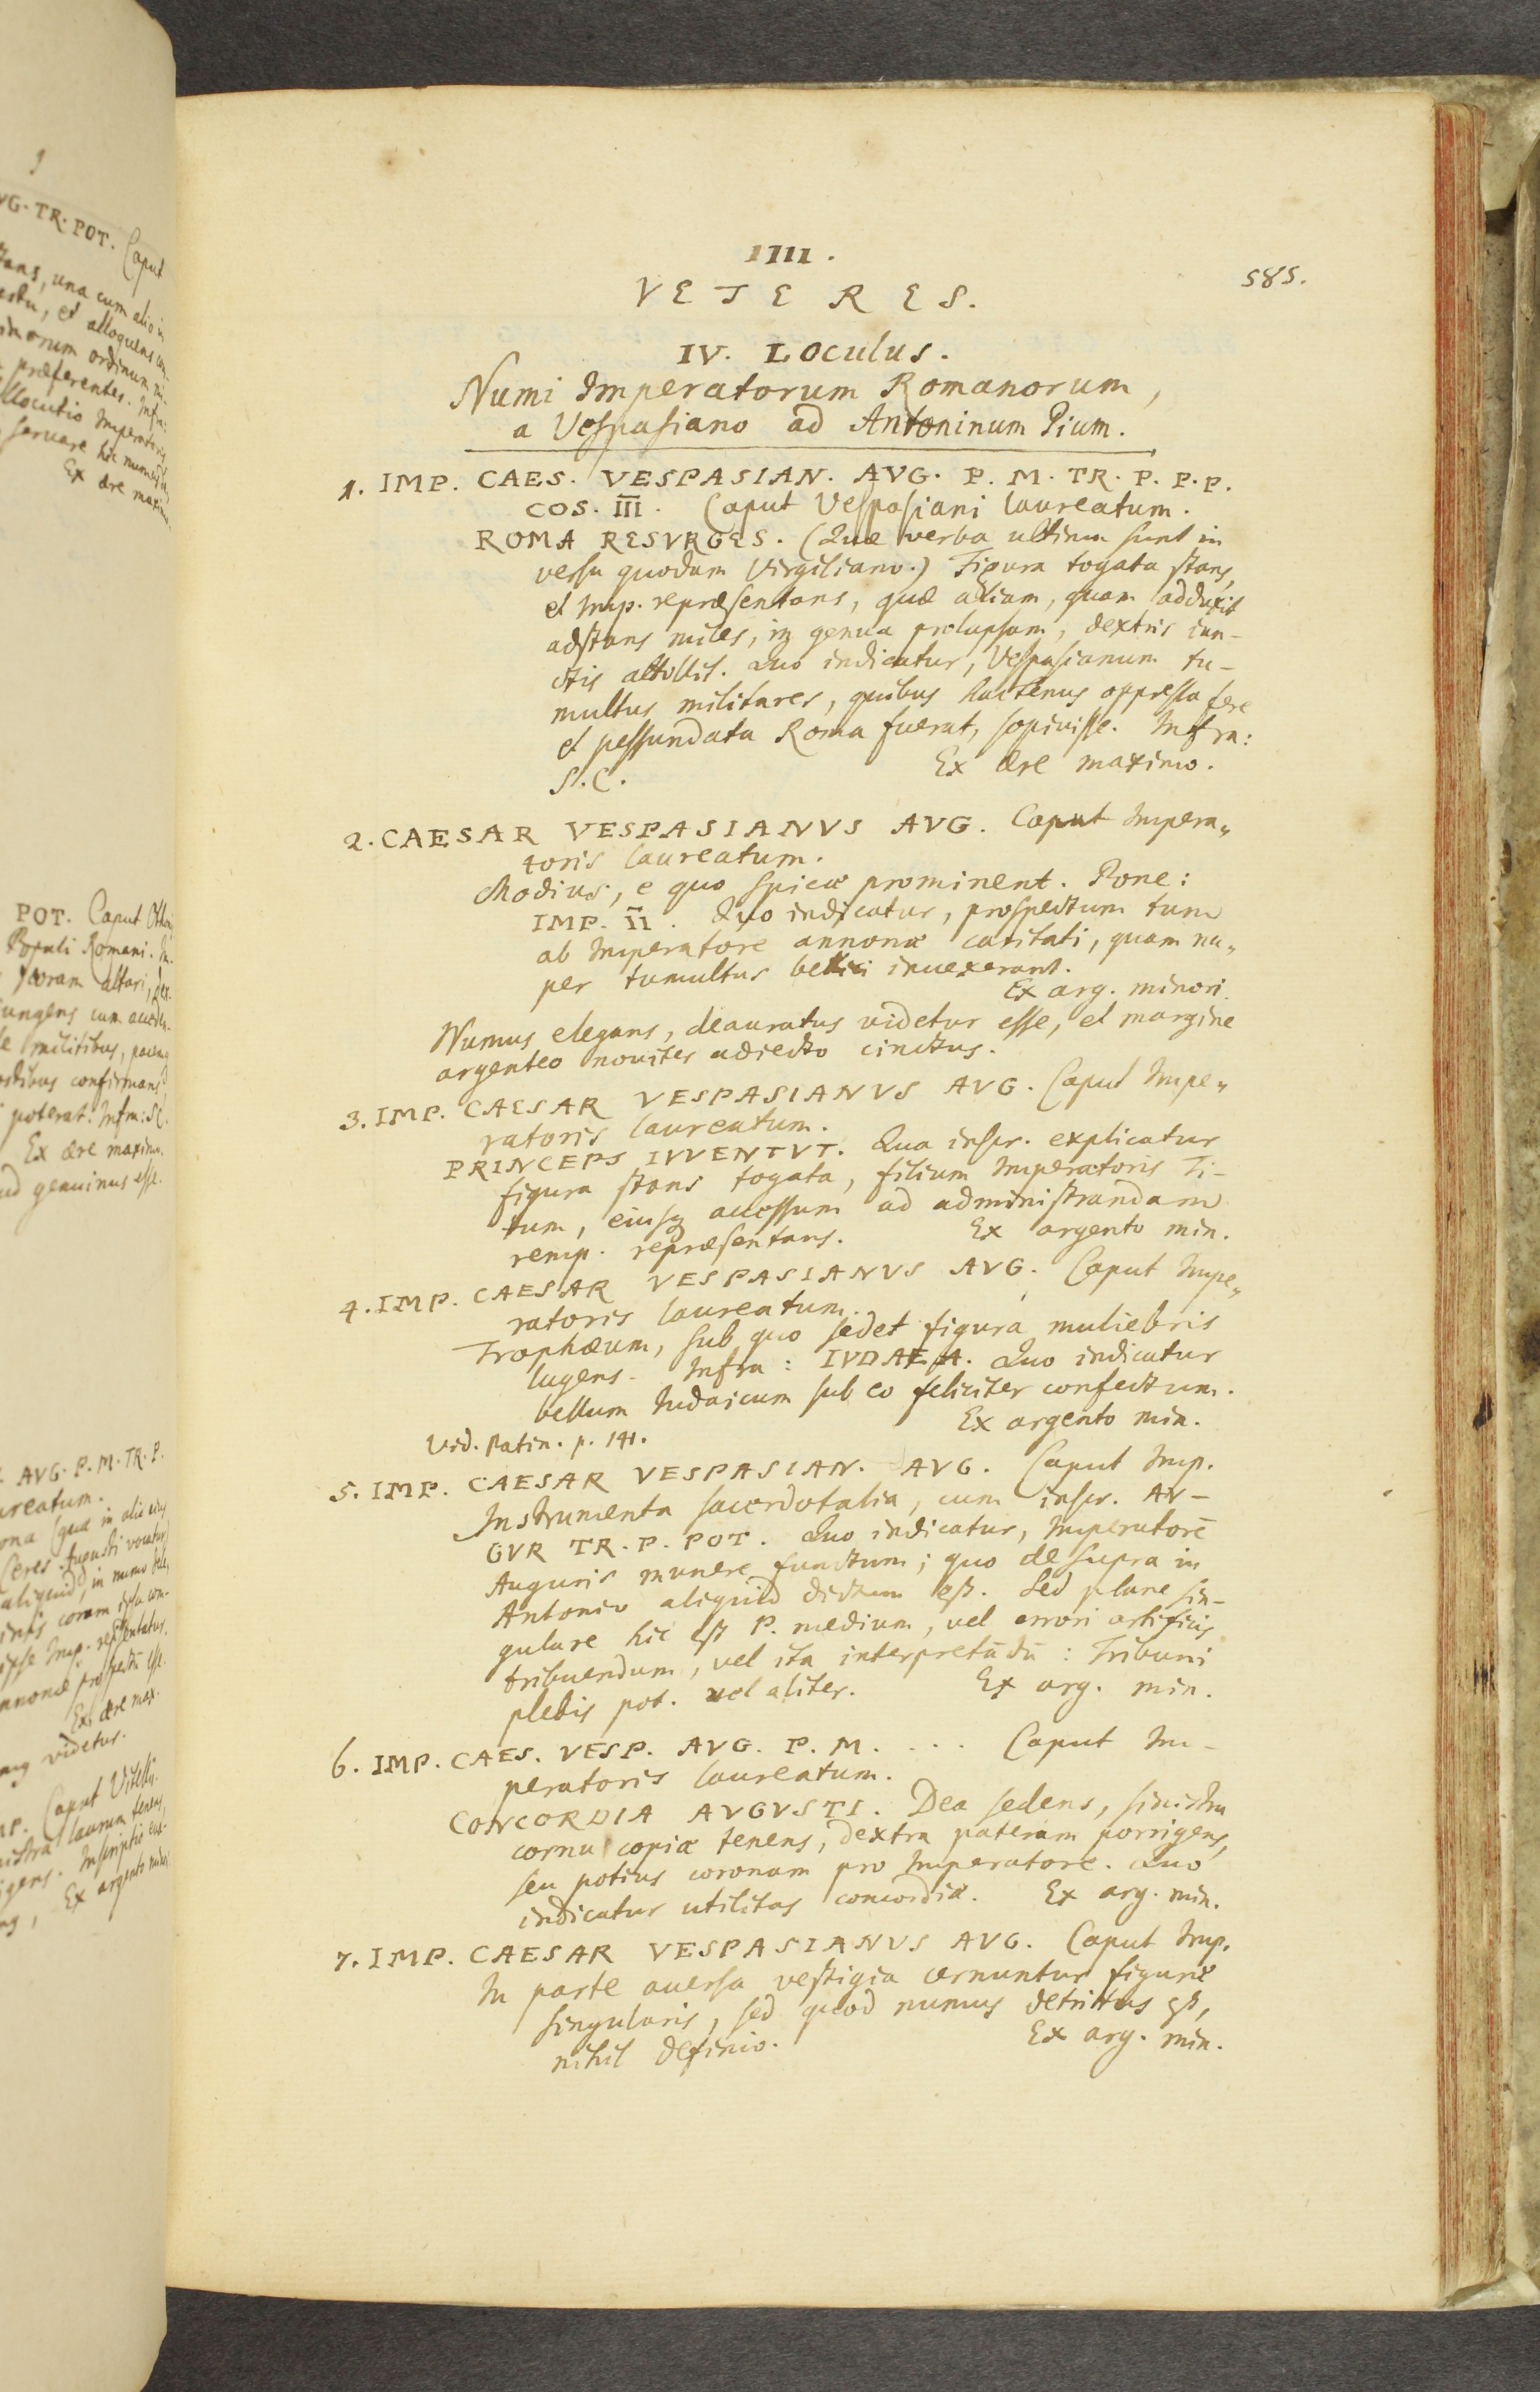 VG. TR. POT. Caput
una cum alio in
et alloquens
ordinum mi-
præferentes. Infra:
Imperatoris
seruare hic
Ex ære maxim.
POT. Caput
Populi Romani.
altari,
cum
militibus,
confirmans
poterat. Infra: SC.
Ex ære maximo.
genuinus esse.
AVG. P. M. TR. P.
Ceres Augusti vocatur
aliquid, in numo
coram
ipse Imp.
annonæ
Ex ære max.
videtur.
Caput Vitellii
laurum tenens,
Inscriptio
Ex argento
IIII.
585.
VETERES.
IV. Loculus.
Numi Imperatorum Romanorum,
a Vespasiano ad Antoninum Pium.
1. IMP. CAES. VESPASIAN. AVG. P. M. TR. P. P. P.
COS. III. Caput Vespasiani laureatum.
ROMA RESVRGES. (Quæ verba ultima sunt in
versu quodam Virgiliano.) Figura togata stans,
et Imp. repræsentans, quæ aliam, quam adduxit
adstans miles, in genua prolapsam, dextris iun-
ctis attollit. Quo indicatur, Vespasianum tu-
multus militares, quibus hactenus oppressa fere
et pessundata Roma fuerat, sopiuisse. Infra:
S. C. Ex ære maximo.
2. CAESAR VESPASIANVS AVG. Caput Impera„
toris laureatum.
Modius, e quo spicæ prominent. Pone:
IMP. II. Quo indicatur, prospectum tum
ab Imperatore annonæ caritati, quam nu„
per tumultus bellici inuexerant.
Ex arg. minori.
Numus elegans, deauratus videtur esse, et margine
argenteo nouiter adiecto cinctus.
3. IMP. CAESAR VESPASIANVS AVG. Caput Impe„
ratoris laureatum.
PRINCEPS IVVENTVT. Qua inscr. explicatur
figura stans togata, filium Imperatoris Ti-
tum, eiusq accessum ad administrandam
remp. repræsentans. Ex argento min.
4. IMP. CAESAR VESPASIANVS AVG. Caput Impe„
ratoris laureatum.
Trophæum, sub quo sedet figura muliebris
lugens. Infra: IVDAEA. Quo indicatur
bellum Iudaicum sub eo feliciter confectum.
Ex argento min.
Vid. Patin. p. 141.
5. IMP. CAESAR VESPASIAN. AVG. Caput Imp.
Instrumenta sacerdotalia, cum inscr. AV-
GVR TR. P. POT. Quo indicatur, Imperatorē
Auguris munere functum; quo de supra in
Antonio aliquid dictum est. Sed plane sin-
gulare hic est P. medium, vel errori artificis
tribuendum, vel ita interpretādū: Tribuni
plebis pot. vel aliter. Ex arg. min.
6. IMP. CAES. VESP. AVG. P. M. . . . Caput Im-
peratoris laureatum.
CONCORDIA AVGVSTI. Dea sedens, sinistra
cornu copiæ tenens, dextra pateram porrigens,
seu potius coronam pro Imperatore. Quo
indicatur utilitas concordiæ. Ex arg. min.
7. IMP. CAESAR VESPASIANVS AVG. Caput Imp.
In parte auersa vestigia cernuntur figuræ
singularis, sed quod numus detritus est,
nihil definio. Ex arg. min.